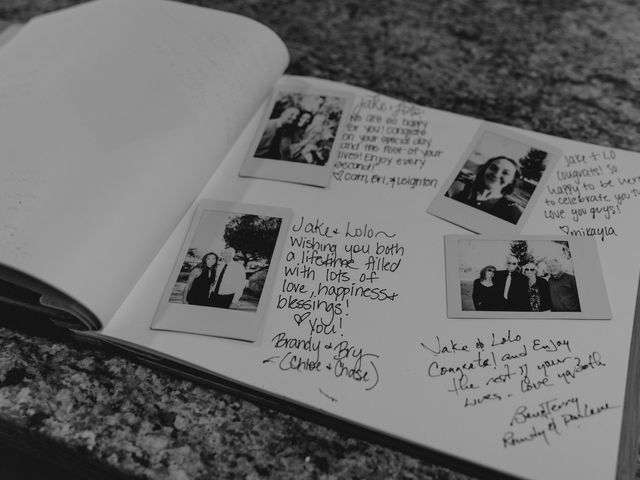 Jake + Lolo
We are so happy
for you! Congrats
on your special day
and the rest of your
lives! Enjoy every
second!
♡ Cam, Bri, & Leighton
Jake & Lolo~
Wishing you both
a lifetime filled
with lots of
love, happiness &
blessings!
♡ you!
Brandy & Bry
(Chloe & Chase)
Jake + Lo
Congrats! So
happy to be here
to celebrate you two
Love you guys!
♡ mikayla
Jake & Lolo
Congrats! and Enjoy
the rest of your
Lives - Love ya both
Terry
Randy & Darlene